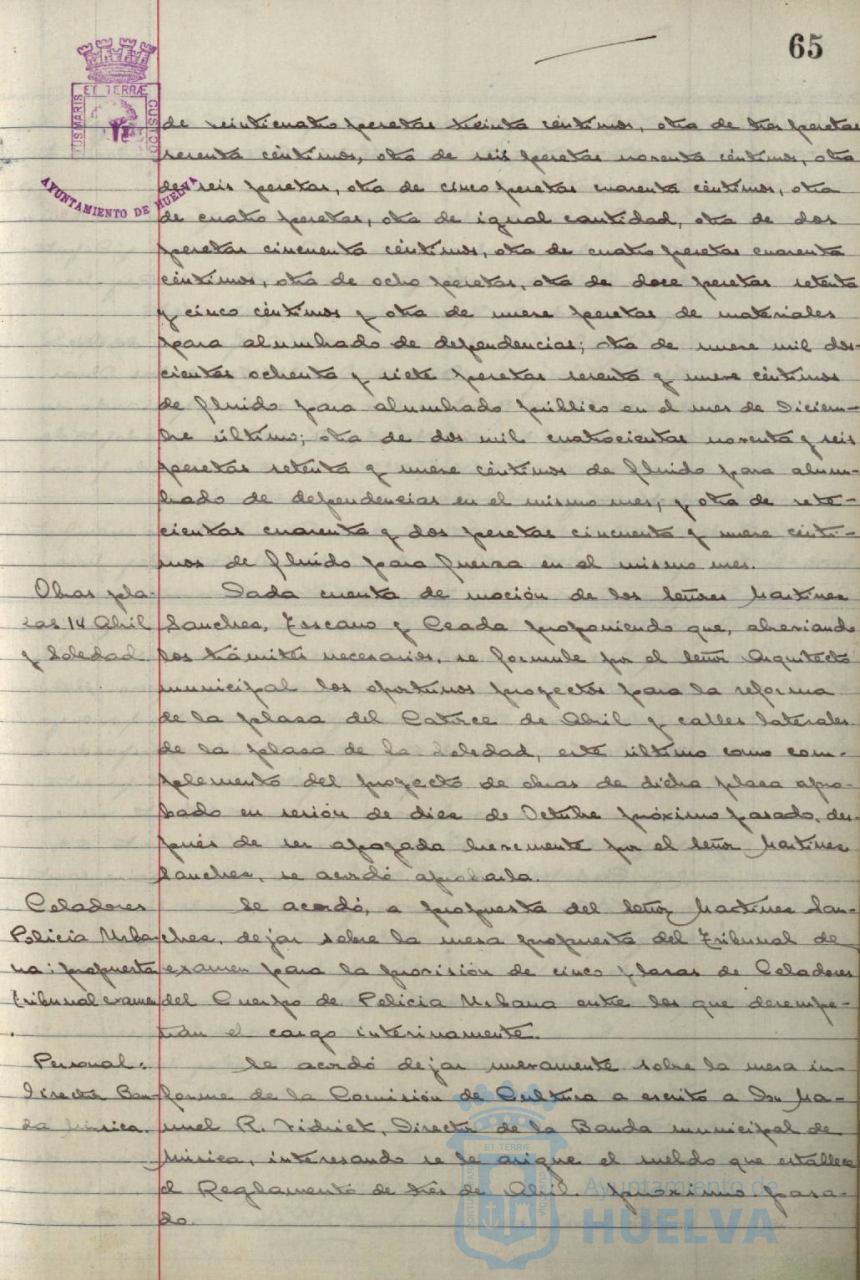 65
ET TERRÆ
CUSTODI
AYUNTAMIENTO DE HUELVA
de veinticuatro pesetas treinta céntimos, otra de tres pesetas
sesenta céntimos, otra de seis pesetas noventa céntimos, otra
de seis pesetas, otra de cinco pesetas cuarenta céntimos, otra
de cuatro pesetas, otra de igual cantidad, otra de dos
pesetas cincuenta céntimos, otra de cuatro pesetas cuarenta
céntimos, otra de ocho pesetas, otra de doce pesetas setenta
y cinco céntimos y otra de nueve pesetas de materiales
para alumbrado de dependencias; otra de nueve mil dos-
cientas ochenta y siete pesetas sesenta y nueve céntimos
de fluido para alumbrado público en el mes de Diciem-
bre último; otra de dos mil cuatrocientas noventa y seis
pesetas setenta y nueve céntimos de fluido para alum-
brado de dependencias en el mismo mes; y otra de sete-
cientas cuarenta y dos pesetas cincuenta y nueve cénti-
mos de fluido para fuerza en el mismo mes.
Obras pla-
zas 14 Abril
y Soledad
Dada cuenta de moción de los señores Martínez
Sanchez, Tescano y Ceada proponiendo que, abreviando
los trámites necesarios, se formule por el señor Arquitecto
municipal los oportunos proyectos para la reforma
de la plaza del Catorce de Abril y calles laterales
de la plaza de la Soledad, este último como com-
plemento del proyecto de obras de dicha plaza apro-
bado en sesión de diez de Octubre próximo pasado, des-
pués de ser apoyada brevemente por el señor Martínez
Sanchez, se acordó aprobarla.
Celadores
Policia Urba-
na: propuesta
Tribunal examen
Se acordó, a propuesta del señor Martínez San-
chez, dejar sobre la mesa propuesta del Tribunal de
examen para la provisión de cinco plazas de Celadores
del Cuerpo de Policia Urbana entre los que desempe-
ñan el cargo interinamente.
Personal:
Director Ban-
da Música.
Se acordó dejar nuevamente sobre la mesa in-
forme de la Comisión de Cultura a escrito a Don Ma-
nuel R. Fidrick, Director de la Banda municipal de
Música, interesando se le asigne el sueldo que establece
el Reglamento de tres de Abril próximo pasa-
do.
Ayuntamiento de
HUELVA